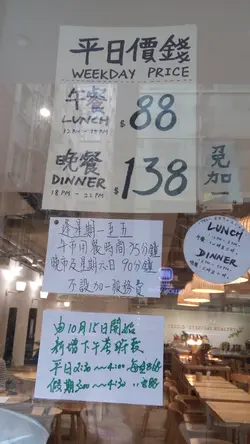 平日價錢
WEEKDAY PRICE
午餐
LUNCH
12PM - 15PM
$88
晚餐
DINNER
18PM - 22PM
$138
免加一
逢星期一至五
午市用餐時間75分鐘
晚市及星期六日90分鐘
不設加一服務費
LUNCH
DINNER
由10月15日開始
新增下午茶時段
平日2:30 ～ 4:00
假期3:00 ～ 4:30